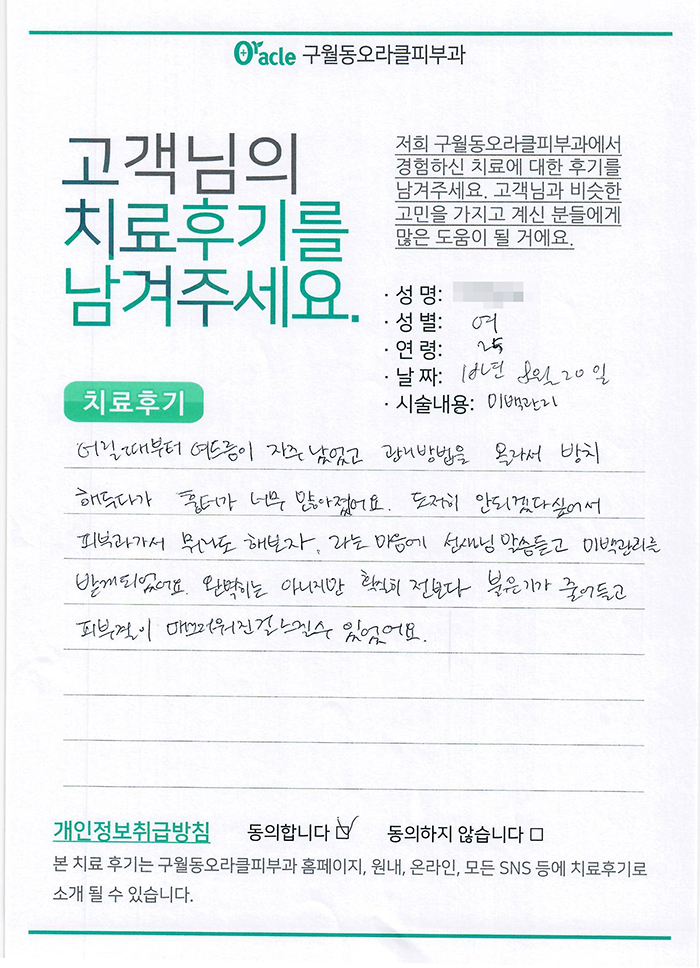 Oracle 구월동오라클피부과
고객님의
치료후기를
남겨주세요.
저희 구월동오라클피부과에서
경험하신 치료에 대한 후기를
남겨주세요. 고객님과 비슷한
고민을 가지고 계신 분들에게
많은 도움이 될 거에요.
· 성 명:
· 성 별: 여
· 연 령:
· 날 짜: 8월 20일
· 시술내용: 미백관리
치료후기
어릴때부터 여드름이 자주 났었고 관리방법을 몰라서 방치
해두다가 흉터가 너무 많아졌어요. 도저히 안되겠다싶어서
피부과가서 뭐라도 해보자, 라는 마음에 선생님 말씀듣고 미백관리를
받게되었어요. 완벽히는 아니지만 확실히 전보다 붉은기가 줄어들고
피부결이 매끄러워진걸 느낄수 있었어요.
개인정보취급방침 동의합니다 ☑ 동의하지 않습니다 □
본 치료 후기는 구월동오라클피부과 홈페이지, 원내, 온라인, 모든 SNS 등에 치료후기로
소개 될 수 있습니다.